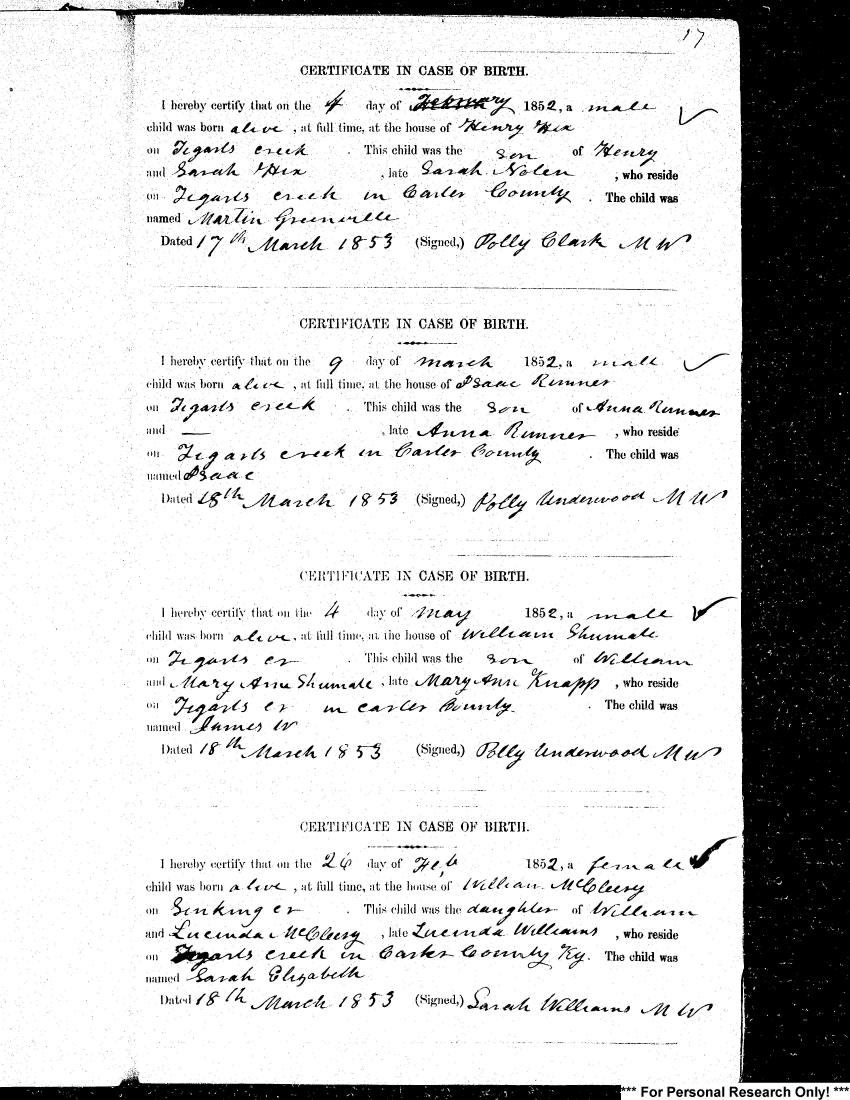 17
CERTIFICATE IN CASE OF BIRTH.
I hereby certify that on the 4 day of February 1852, a male
child was born alive, at full time, at the house of Henry Hix
on Tygarts creek. This child was the son of Henry
and Sarah Hix, late Sarah Nolen, who reside
on Tygarts creek in Carter County. The child was
named Martin Greenville
Dated 17th March 1853 (Signed,) Polly Clark M W
CERTIFICATE IN CASE OF BIRTH.
I hereby certify that on the 9 day of march 1852, a male
child was born alive, at full time, at the house of Isaac Rumner
on Tygarts creek. This child was the son of Anna Rumner
and —, late Anna Rumner, who reside
on Tygarts creek in Carter County. The child was
named Isaac
Dated 18th March 1853 (Signed,) Polly Underwood M W
CERTIFICATE IN CASE OF BIRTH.
I hereby certify that on the 4 day of may 1852, a male
child was born alive, at full time, at the house of William Shumate
on Tygarts cr. This child was the son of William
and Mary Ann Shumate, late Mary Ann Knapp, who reside
on Tygarts cr in carter County. The child was
named James W
Dated 18th March 1853 (Signed,) Polly Underwood M W
CERTIFICATE IN CASE OF BIRTH.
I hereby certify that on the 26 day of Feb 1852, a female
child was born alive, at full time, at the house of William McCleery
on Sinking cr. This child was the daughter of William
and Lucinda McCleery, late Lucinda Williams, who reside
on Tygarts creek in Carter County Ky. The child was
named Sarah Elizabeth
Dated 18th March 1853 (Signed,) Sarah Williams M W
*** For Personal Research Only! ***